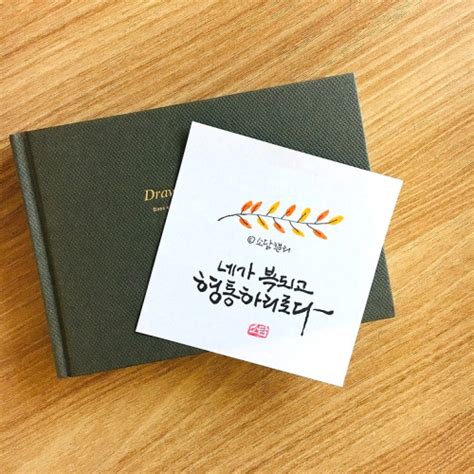 Draw
© 소담캘리
네가 복되고
형통하리로다
소담